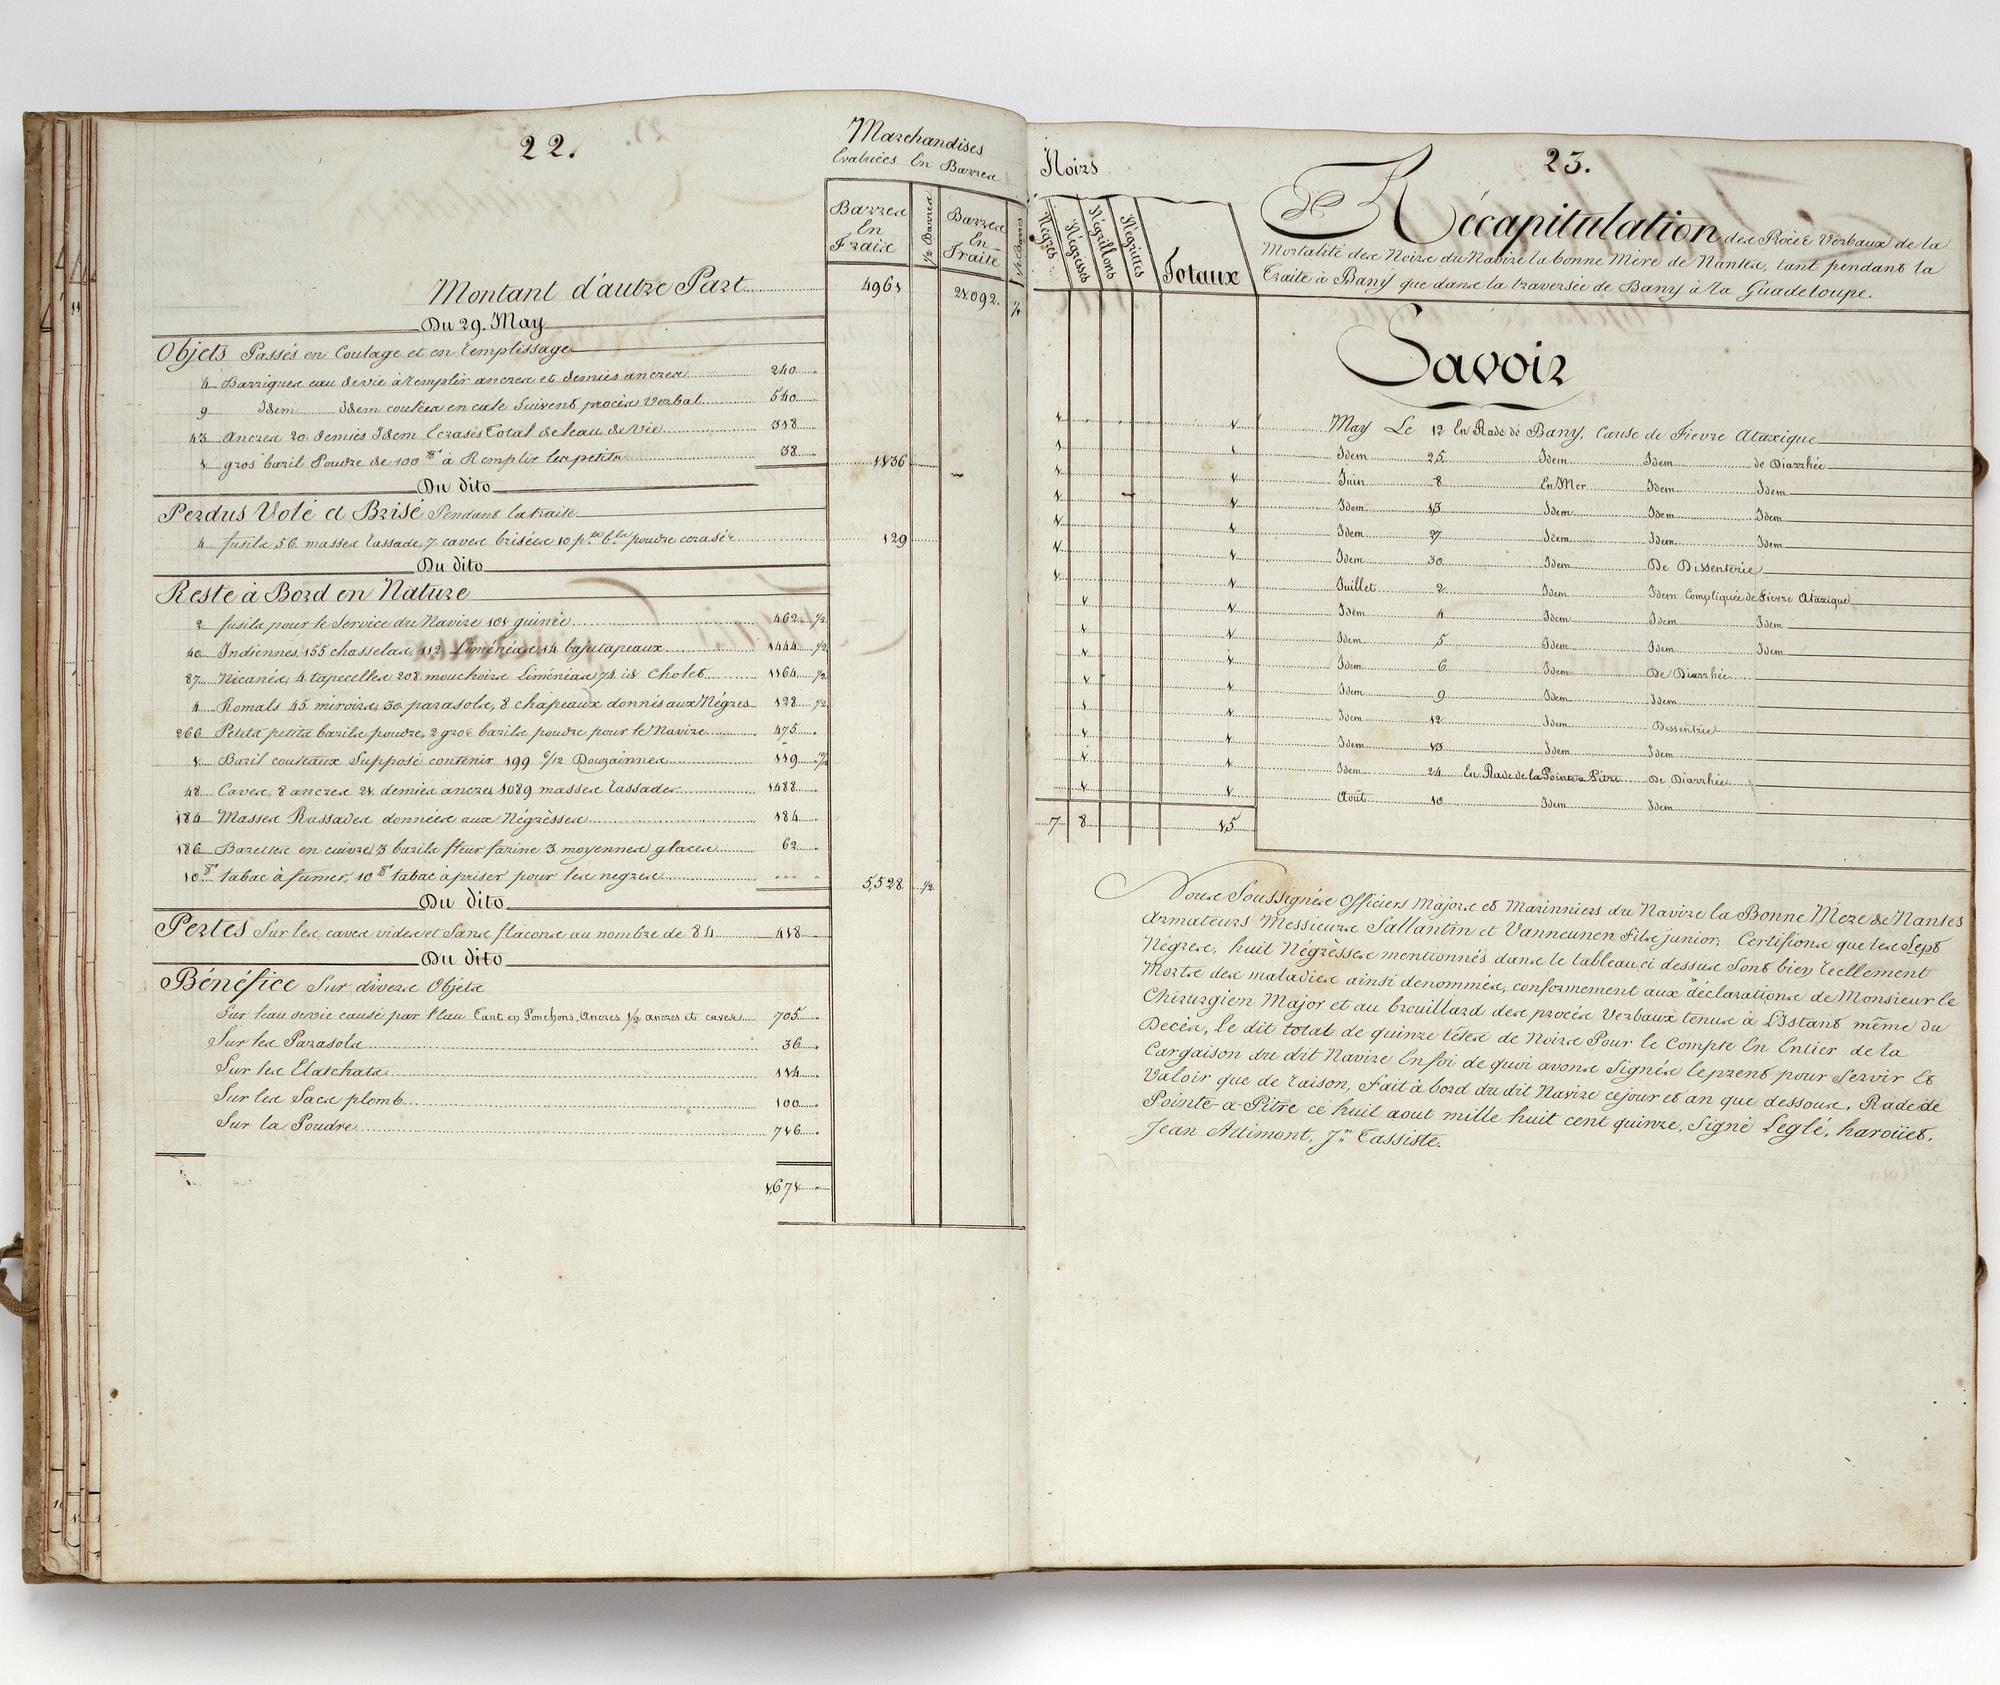 22.
Marchandises
Evaluées En Barres
Barres En Fraix
1/2 Barres
Barres En Traite
1/2 Barres
Montant d'autre Part 4961 21092. 1/2
Du 29. May
Objets Passés en Coulage et en Remplissage
4 Barriques eau de vie à Remplir ancres et demies ancres 240
9 Idem Idem coulées en cale Suivent procès Verbal 540
43 Ancres 20. demies Idem Ecrasés Total de leau de Vie 318
1 gros baril Poudre de 100 à Remplir les petits 38 1136
Du dito
Perdus Volé et Brisé Pendant la traite
4 fusils 56. masses Rassade, 7. caves brisées 10 p.ts b.ls poudre ecrasée 129
Du dito
Reste à Bord en Nature
2 fusils pour le Service du Navire 101 guinée 462 1/2
40 Indiennes, 155 chasselas, 112 Liménéas 14 bajutapeaux 1444 1/2
87 Nicanées, 4 tapecelles 208. mouchoirs Liménéas 74 id Cholet 1164 1/2
4 Romals 45 miroirs, 30 parasols, 8 chapeaux donnés aux Négres 128 1/2
260 Petits petits barils poudre, 2 gros barils poudre pour le Navire 475
1 Baril couteaux Supposé contenir 199 6/12 Douzainnes 119
48 Caves, 8 ancres 21 demies ancres 1089 masses Rassades 1488
184 Masses Rassades données aux Négrèsses 184
186 Barettes en cuivre, 3 barils fleur farine 3 moyennes glaces 62
10 tabac à fumer, 10 tabac à priser pour les negres 5,528 1/2
Du dito
Pertes Sur les caves vides et Sans flacons au nombre de 84 418
Du dito
Bénéfice Sur divers Objets
Sur leau de vie causé par l'eau Tant en Ponchons, Ancres 1/2 ancres et caves 705
Sur les Parasols 36
Sur les Elatchats 114
Sur les Sacs plomb 100
Sur la Poudre 716
1,671
Noirs
23.
Négres
Négresses
Négrillons
Négrittes
Totaux
Récapitulation des Procès Verbaux de la
Mortalité des Noirs du Navire la bonne Mère de Nantes, tant pendant la
Traite à Bany que dans la traversée de Bany à la Guadeloupe.
Savoir
1 1 May Le 12 En Rade de Bany, Cause de Fievre Ataxique
1 1 Idem 25 Idem Idem de Diarrhée
1 1 Juin 8 En Mer Idem Idem
1 1 Idem 13 Idem Idem Idem
1 1 Idem 27 Idem Idem Idem
1 1 Idem 30 Idem De Dissenterie
1 1 Juillet 2 Idem Idem Compliquée de Fievre Ataxique
1 1 Idem 4 Idem Idem Idem
1 1 Idem 5 Idem Idem Idem
1 1 Idem 6 Idem De Diarrhée
1 1 Idem 9 Idem Idem
1 1 Idem 12 Idem Dissentrie
1 1 Idem 13 Idem Idem
1 1 Idem 24 En Rade de la Pointe a Pitre De Diarrhée
1 1 Août 10 Idem Idem
7 8 15
Nous Soussignés Officiers Majors et Marinniers du Navire la Bonne Mere de Nantes
Armateurs Messieurs Sallantin et Vanneunen Fils junior; Certifions que les Sept
Négres, huit Négrèsses mentionnés dans le tableau ci dessus Sont bien réellement
Morts des maladies ainsi denommés, conformement aux déclarations de Monsieur le
Chirurgien Major et au brouillard des procès Verbaux tenus à L'Istant même du
Decès, Le dit total de quinze têtes de Noirs Pour le Compte En Entier de la
Cargaison du dit Navire En foi de quoi avons Signés le prent pour Servir Et
Valoir que de raison, Fait à bord du dit Navire ce jour et an que dessous, Rade de
Pointe-a-Pitre ce huit aout mille huit cent quinze, Signé Leglé, harouët,
Jean Allimont, J.n Cassiste.